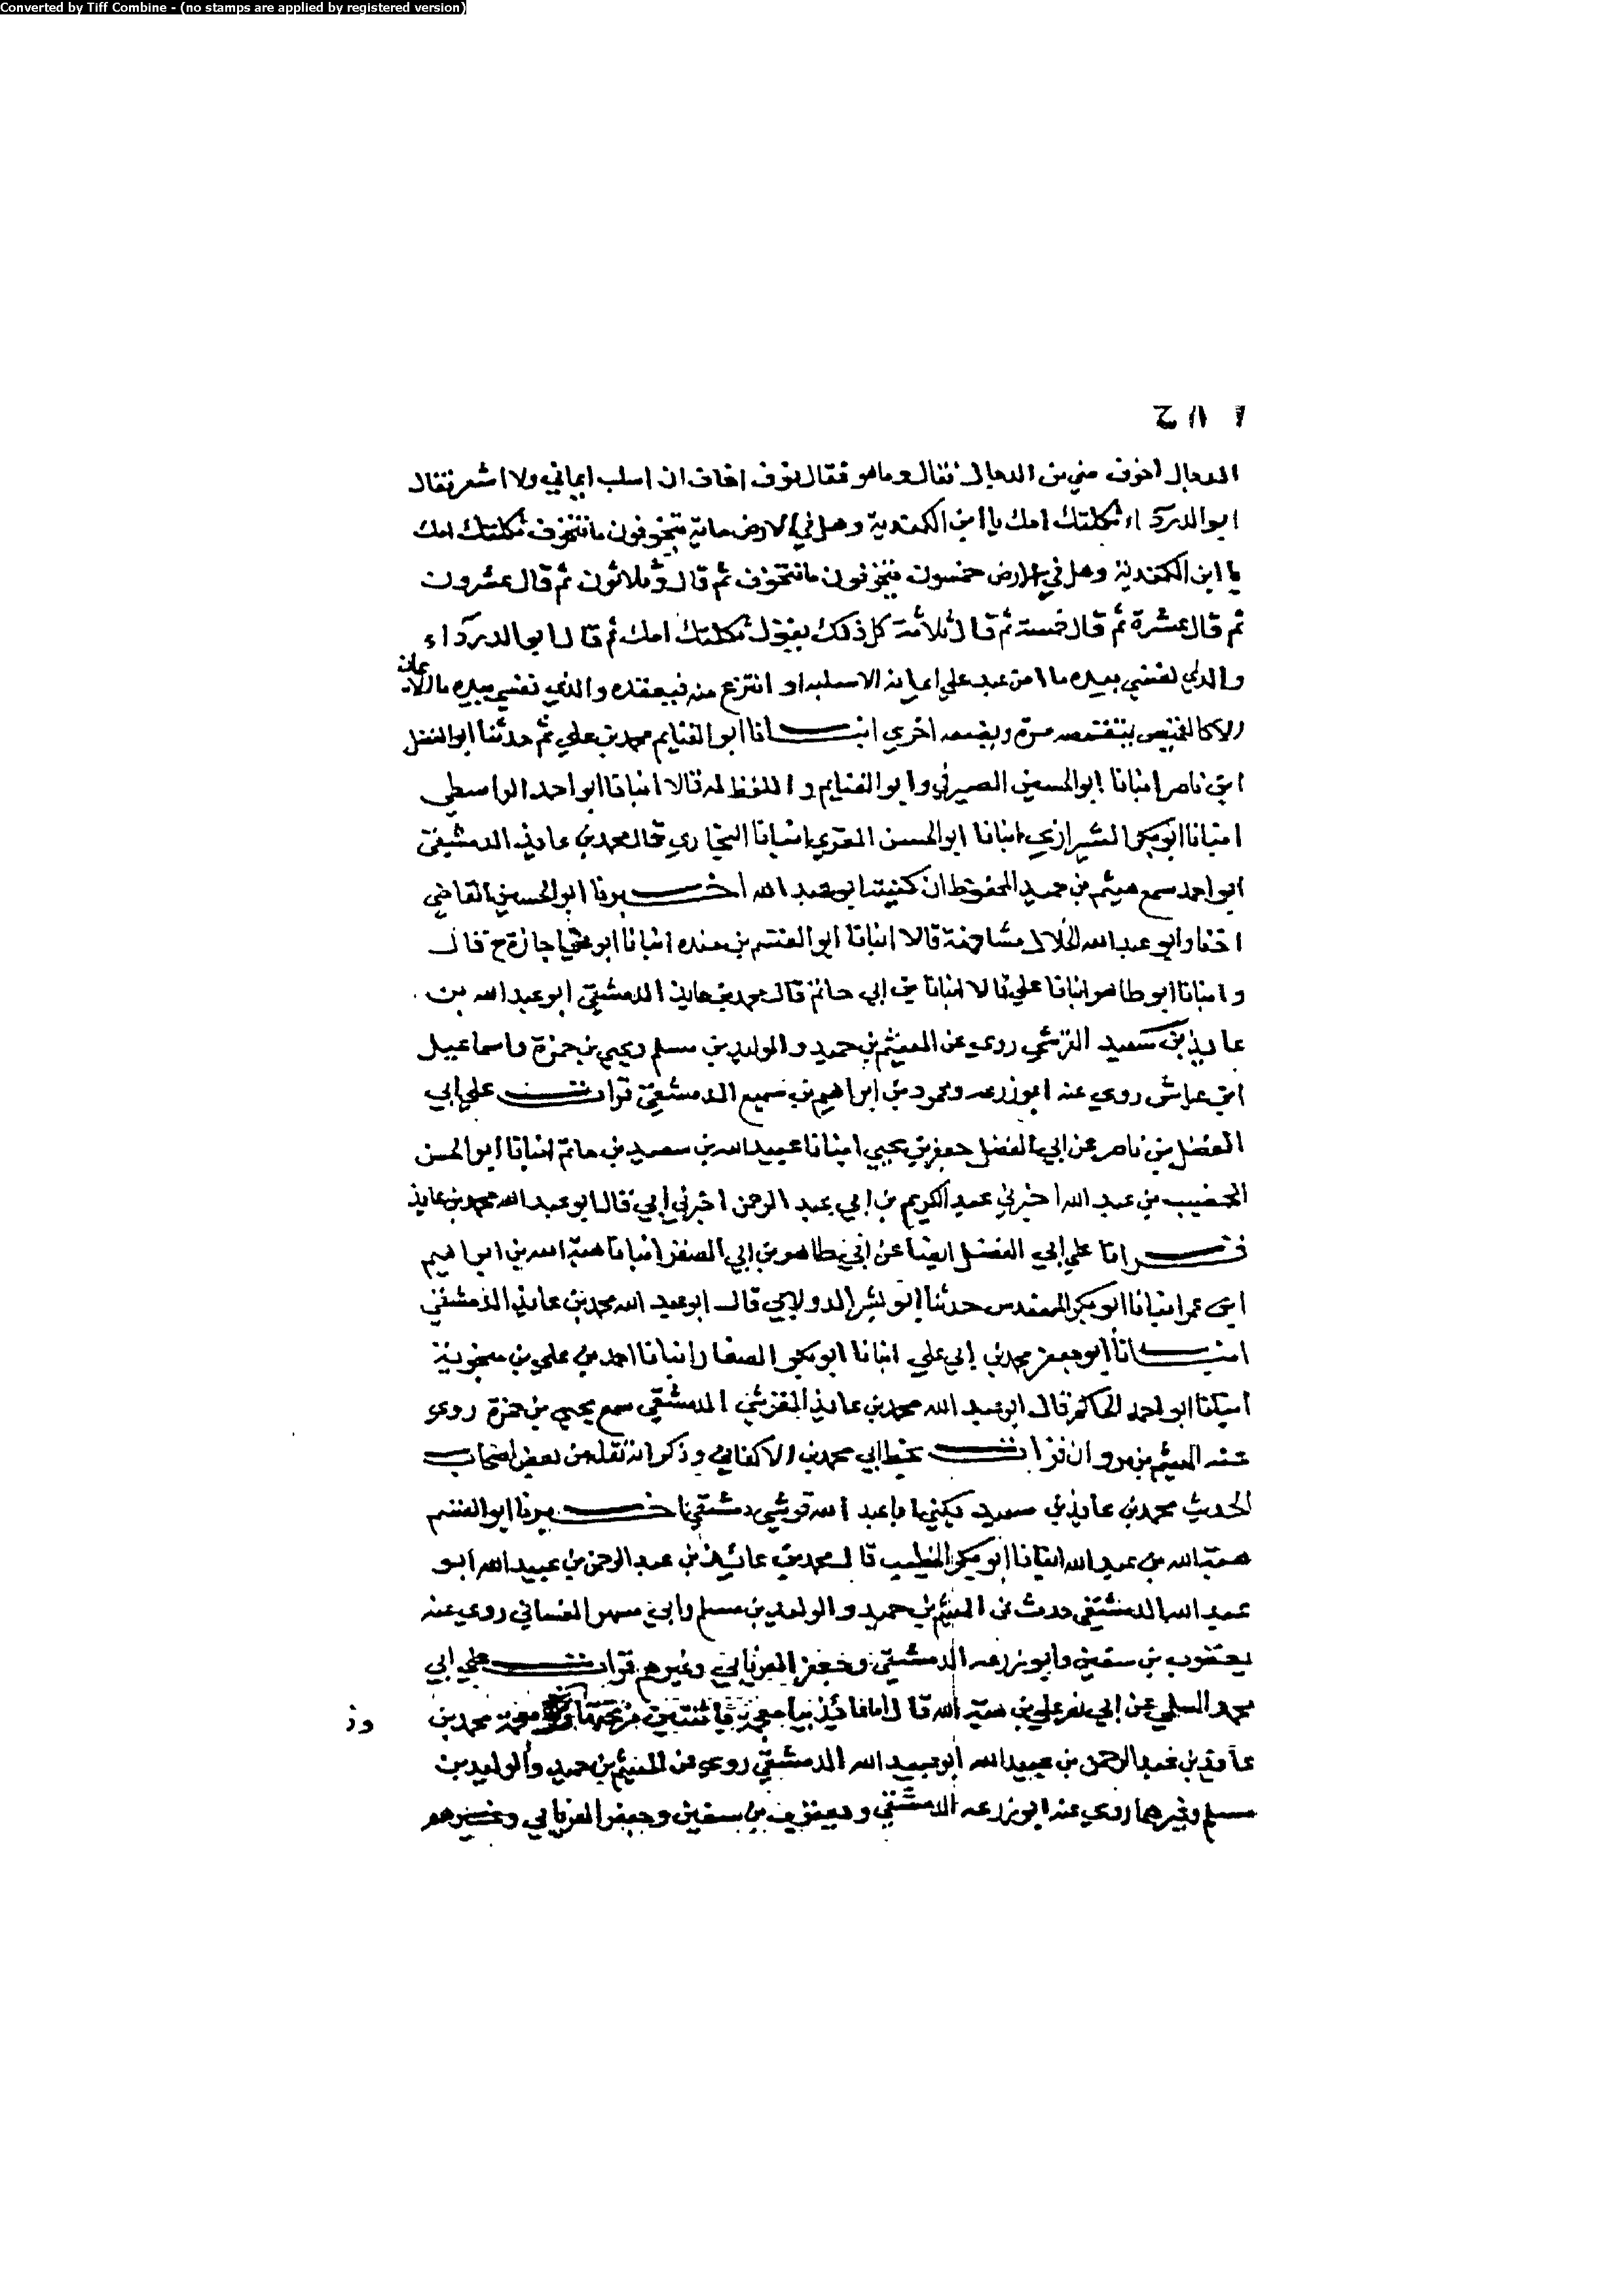 Converted by Tiff Combine - (no stamps are applied by registered version)
الدجال اخوف مني من الدجال فقال وما هو فقال نوف اخاف ان اسلب ايماني ولا اشعر فقال
ابو الدرداء ثكلتك امك يا ابن الكندية وهل في الارض ماية يتخوفون ما تتخوف ثكلتك امك
يا ابن الكندية وهل في الارض خمسون يتخوفون ما تتخوف ثم قال وثلاثون ثم قال عشرون
ثم قال عشرة ثم قال خمسة ثم قال ثلاثة كل ذلك يقول ثكلتك امك ثم قال ابو الدرداء
والذي نفسي بيده ما امن عبد علي ايمانه الا سلبه او انتزع منه فيفقده والذي نفسي بيده ما الايمان
الا كالقميص يتقمصه مرة ويضعه اخري انبانا ابو الغنايم محمد بن علي ثم حدثنا ابو الفضل
ابن ناصر انبانا ابو الحسين الصيرفي وابو الغنايم واللفظ له قالا انبانا ابو احمد الواسطي
انبانا ابو بكر الشيرازي انبانا ابو الحسن المقري انبانا البخاري قال محمد بن عايذ الدمشقي
ابو احمد سمع هيثم بن حميد المحفوظ ان كنيته ابو عبد الله اخبرنا ابو الحسين القاضي
اذنا وابو عبد الله الخلال مشافهة قالا انبانا ابو القسم بن منده انبانا ابو علي اجازة ح قال
وانبانا ابو طاهر انبانا علي قالا انبانا بن ابي حاتم قال محمد بن عايذ الدمشقي ابو عبد الله بن
عايذ بن سعيد القرشي روى عن الهيثم بن حميد والوليد بن مسلم ويحيي بن حمزة واسماعيل
ابن عياش روي عنه ابو زرعه ومحمود بن ابراهيم بن سميع الدمشقي قرات علي ابي
الفضل بن ناصر عن ابي الفضل جعفر بن يحيي انبانا عبيد الله بن سعيد بن حاتم انبانا ابو الحسن
الخصيب بن عبد الله اخبرني عبد الكريم بن ابي عبد الرحمن اخبرني ابي قال ابو عبد الله محمد بن عايذ
قرانا علي ابي الفضل ايضا عن ابي طاهر بن ابي الصقر انبانا هبة الله بن ابراهيم
ابن عمر انبانا ابو بكر المهندس حدثنا ابو بشر الدولابي قال ابو عبد الله محمد بن عايذ الدمشقي
انبانا ابو جعفر محمد بن ابي علي انبانا ابو بكر الصفار انبانا احمد بن علي بن منجويه
انبانا ابو احمد الحاكم قال ابو عبد الله محمد بن عايذ القرشي الدمشقي سمع يحيي بن حمزة روى
عنه الهيثم بن مروان قرات بخط ابي محمد بن الاكفاني وذكر انه نقله من بعض اصحاب
الحديث محمد بن عايذ بن سعيد يكني ابا عبد الله قرشي دمشقي اخبرنا ابو القسم
هبة الله بن عبد الله انبانا ابو بكر الخطيب قال محمد بن عائذ بن عبد الرحمن بن عبيد الله ابو
عبد الله الدمشقي حدث عن الهيثم بن حميد والوليد بن مسلم وابي مسهر الغساني روي عنه
يعقوب بن سفين وابو زرعه الدمشقي وجعفر الفريابي وغيرهم قرات علي ابي
محمد السلمي عن ابي نصر علي بن هبة الله قال اما عائذ بيا معجمة باثنتين من تحتها معجمة محمد بن
عايذ بن عبد الرحمن بن عبيد الله ابو عبد الله الدمشقي روى عن الهيثم بن حميد والوليد بن
مسلم وغيرهما روي عنه ابو زرعه الدمشقي ويعقوب بن سفين وجعفر الفريابي وغيرهم